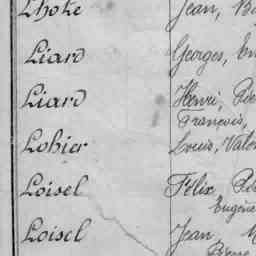 Lhote Jean,
Liard Georges,
Liard Henri,
François,
Lohier Louis,
Loisel Félix
Eugène
Loisel Jean